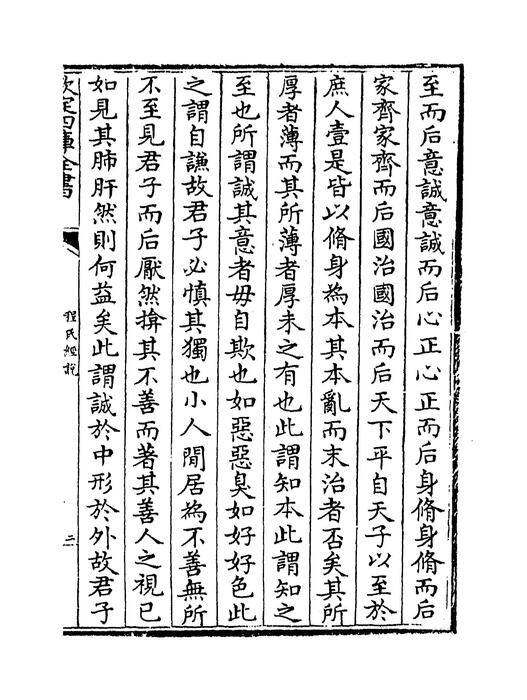 至而后意誠意誠而后心正心正而后身脩身脩而后
家齊家齊而后國治國治而后天下平自天子以至於
庶人壹是皆以脩身為本其本亂而末治者否矣其所
厚者薄而其所薄者厚未之有也此謂知本此謂知之
至也所謂誠其意者毋自欺也如惡惡臭如好好色此
之謂自謙故君子必慎其獨也小人閒居為不善無所
不至見君子而后厭然揜其不善而著其善人之視已
如見其肺肝然則何益矣此謂誠於中形於外故君子
欽定四庫全書
程氏經說
二